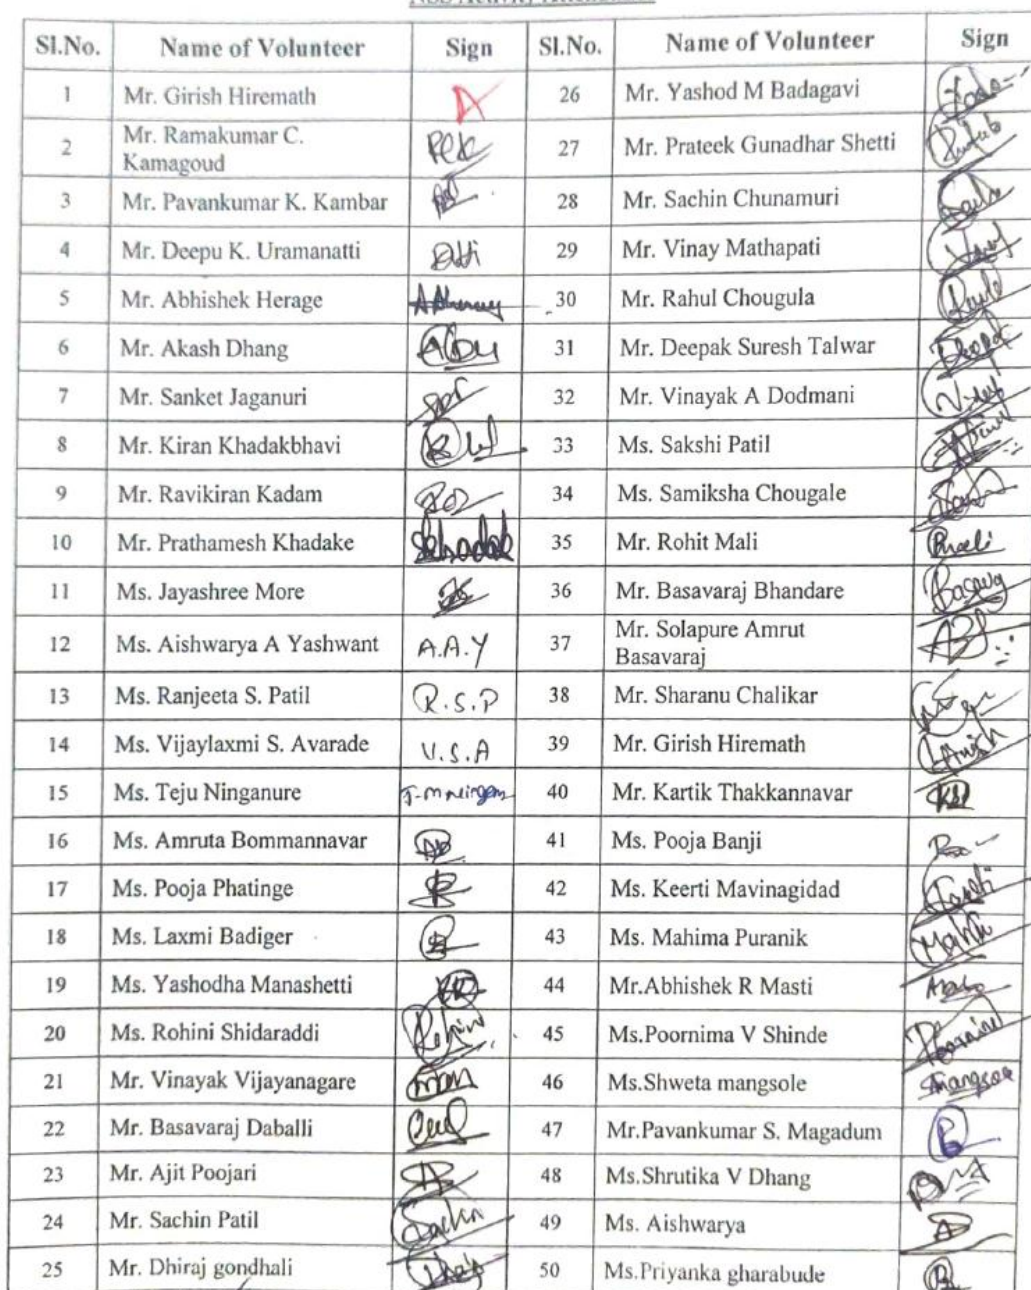 Sl.No. Name of Volunteer Sign Sl.No. Name of Volunteer Sign
1 Mr. Girish Hiremath A 26 Mr. Yashod M Badagavi
2 Mr. Ramakumar C. Kamagoud 27 Mr. Prateek Gunadhar Shetti
3 Mr. Pavankumar K. Kambar 28 Mr. Sachin Chunamuri
4 Mr. Deepu K. Uramanatti 29 Mr. Vinay Mathapati
5 Mr. Abhishek Herage 30 Mr. Rahul Chougula
6 Mr. Akash Dhang 31 Mr. Deepak Suresh Talwar
7 Mr. Sanket Jaganuri 32 Mr. Vinayak A Dodmani
8 Mr. Kiran Khadakbhavi 33 Ms. Sakshi Patil
9 Mr. Ravikiran Kadam 34 Ms. Samiksha Chougale
10 Mr. Prathamesh Khadake 35 Mr. Rohit Mali
11 Ms. Jayashree More 36 Mr. Basavaraj Bhandare
12 Ms. Aishwarya A Yashwant A.A.Y 37 Mr. Solapure Amrut Basavaraj
13 Ms. Ranjeeta S. Patil R.S.P 38 Mr. Sharanu Chalikar
14 Ms. Vijaylaxmi S. Avarade V.S.A 39 Mr. Girish Hiremath
15 Ms. Teju Ninganure 40 Mr. Kartik Thakkannavar
16 Ms. Amruta Bommannavar 41 Ms. Pooja Banji
17 Ms. Pooja Phatinge 42 Ms. Keerti Mavinagidad
18 Ms. Laxmi Badiger 43 Ms. Mahima Puranik
19 Ms. Yashodha Manashetti 44 Mr.Abhishek R Masti
20 Ms. Rohini Shidaraddi 45 Ms.Poornima V Shinde
21 Mr. Vinayak Vijayanagare 46 Ms.Shweta mangsole
22 Mr. Basavaraj Daballi 47 Mr.Pavankumar S. Magadum
23 Mr. Ajit Poojari 48 Ms.Shrutika V Dhang
24 Mr. Sachin Patil Sachin 49 Ms. Aishwarya
25 Mr. Dhiraj gondhali 50 Ms.Priyanka gharabude